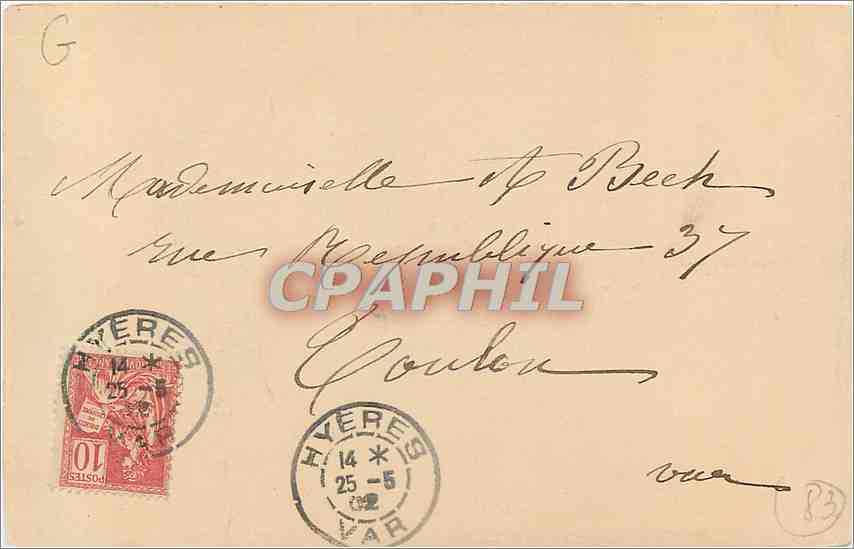 G
Mademoiselle A Bech
rue Republique 37
CPAPHIL
Toulon
HYERES
14 *
25 - 5
02
VAR
HYERES
14 *
25 - 5
02
VAR
10
POSTES
var
83